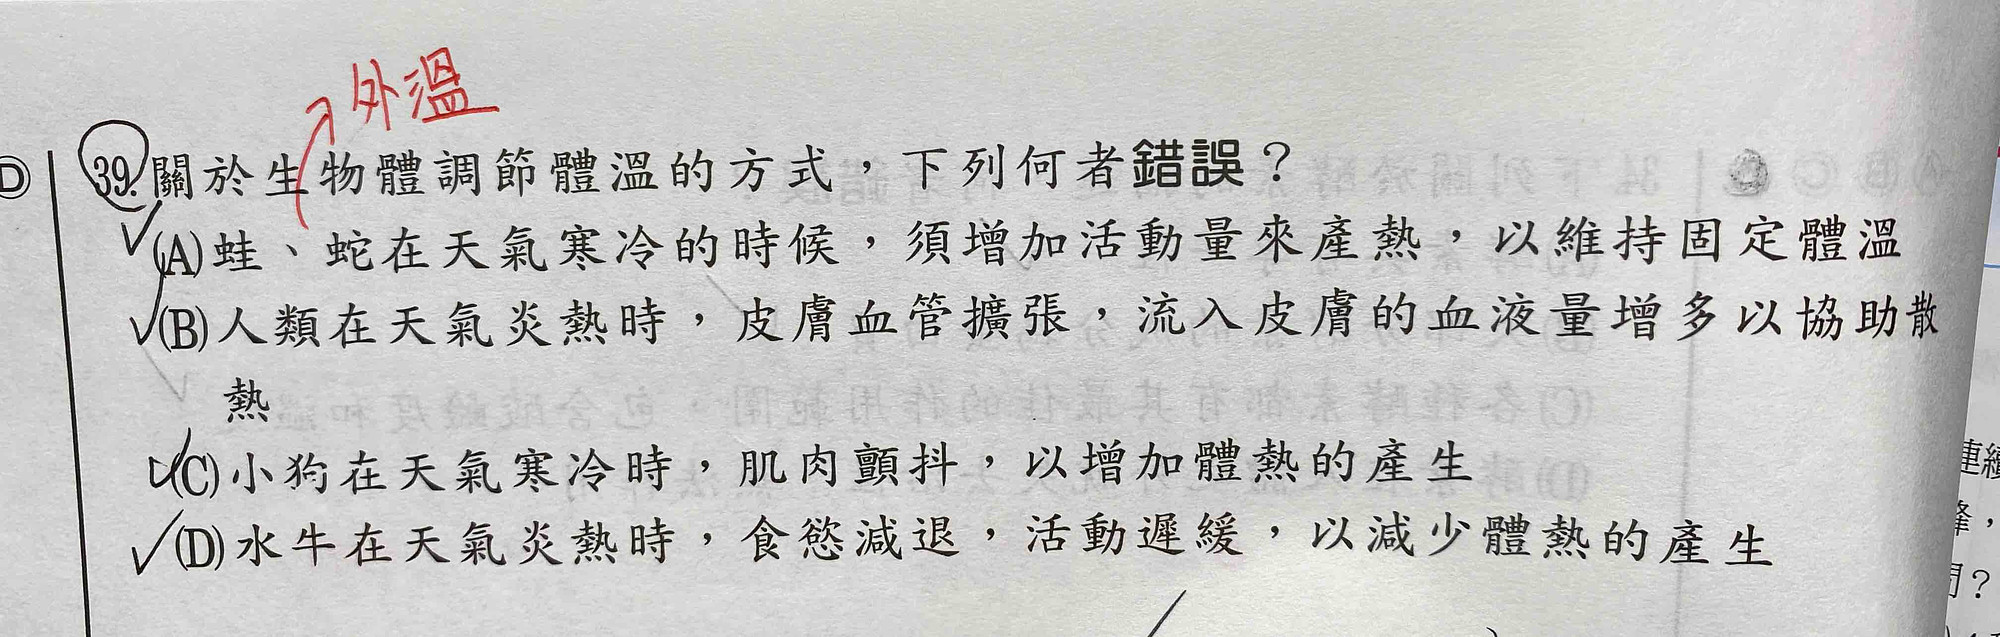 外溫
39.關於生物體調節體溫的方式，下列何者錯誤？
(A)蛙、蛇在天氣寒冷的時候，須增加活動量來產熱，以維持固定體溫
(B)人類在天氣炎熱時，皮膚血管擴張，流入皮膚的血液量增多以協助散
熱
(C)小狗在天氣寒冷時，肌肉顫抖，以增加體熱的產生
(D)水牛在天氣炎熱時，食慾減退，活動遲緩，以減少體熱的產生
D
連續
？